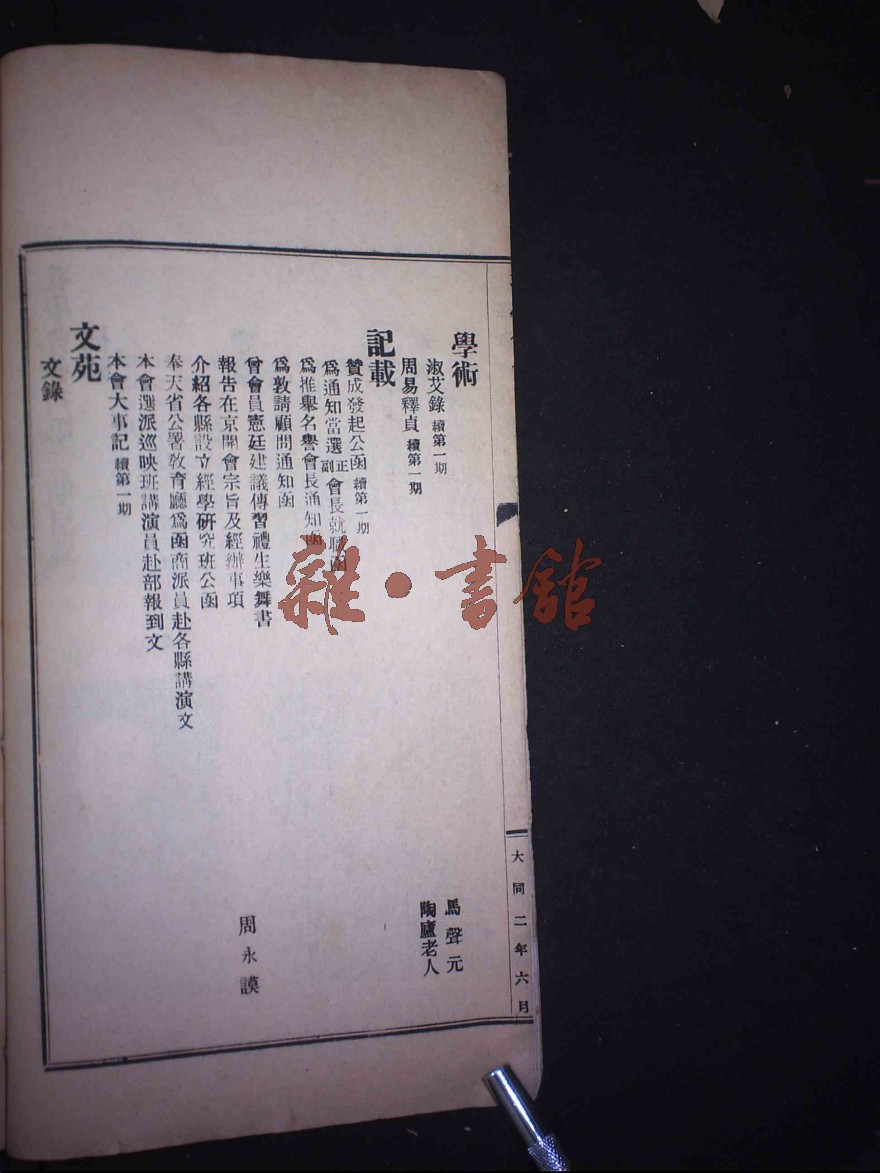 學術
淑艾錄 續第一期 馬聲元
周易釋貞 續第一期 陶廬老人
記載
贊成發起公函 續第一期
爲通知當選正副會長就職函
爲推舉名譽會長通知函
爲敦請顧問通知函
曾會員憲廷建議傳習禮生樂舞書
報告在京開會宗旨及經辦事項 周永謨
介紹各縣設立經學研究班公函
奉天省公署教育廳爲函商派員赴各縣講演文
本會選派巡映班講演員赴部報到文
本會大事記 續第一期
文苑
文錄
大同二年六月
雜·書館